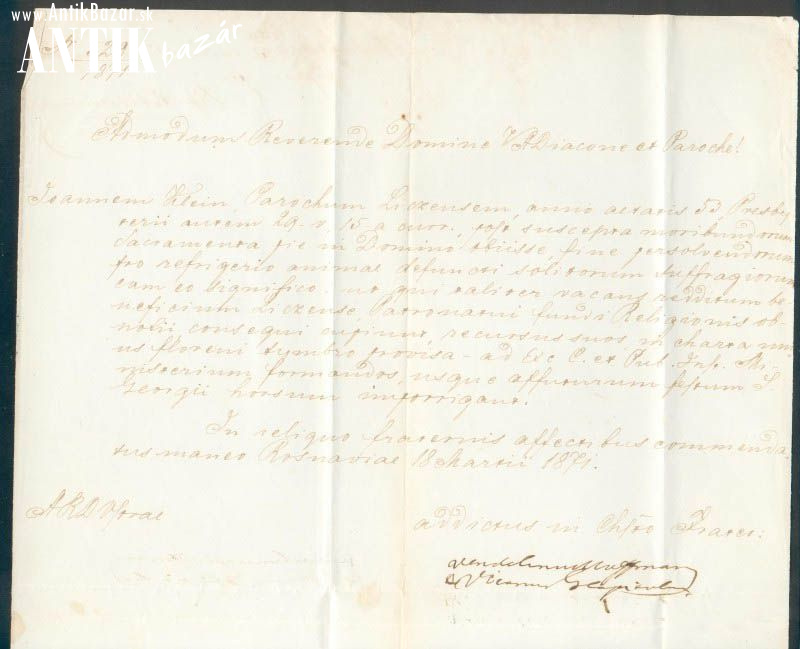 www.AntikBazar.sk
ANTIK bazár
1871
Admodum Reverende Domine VADiacone et Paroche!
Joannem Klein, Parochum Liczensem, anno aetatis 53, Presby
terii autem 29. v. 15 a. curr., post suscepta moribundorum
Sacramenta pie in Domino obiisse, fine persolvendorum
pro refrigerio animae defuncti solitorum suffragiorum
eam eo significo, ut qui taliter vacans redditum be
neficium Liczense Patronatui fundi Religionis ob-
noxii consequi cupiunt, recursus suos, in charta uni
us floreni tymbro provisa - ad Exc. C. et Pub. Inst. Mi-
nisterium formandos, usque affuturum festum S.
Georgii horsum imporrigant.
In reliquo fraternis affectibus commenda
tus maneo Rosnaviae 18 Martii 1871.
ARD Vestrae
addictus in Chsto Frater:
Vicarius Capitularis